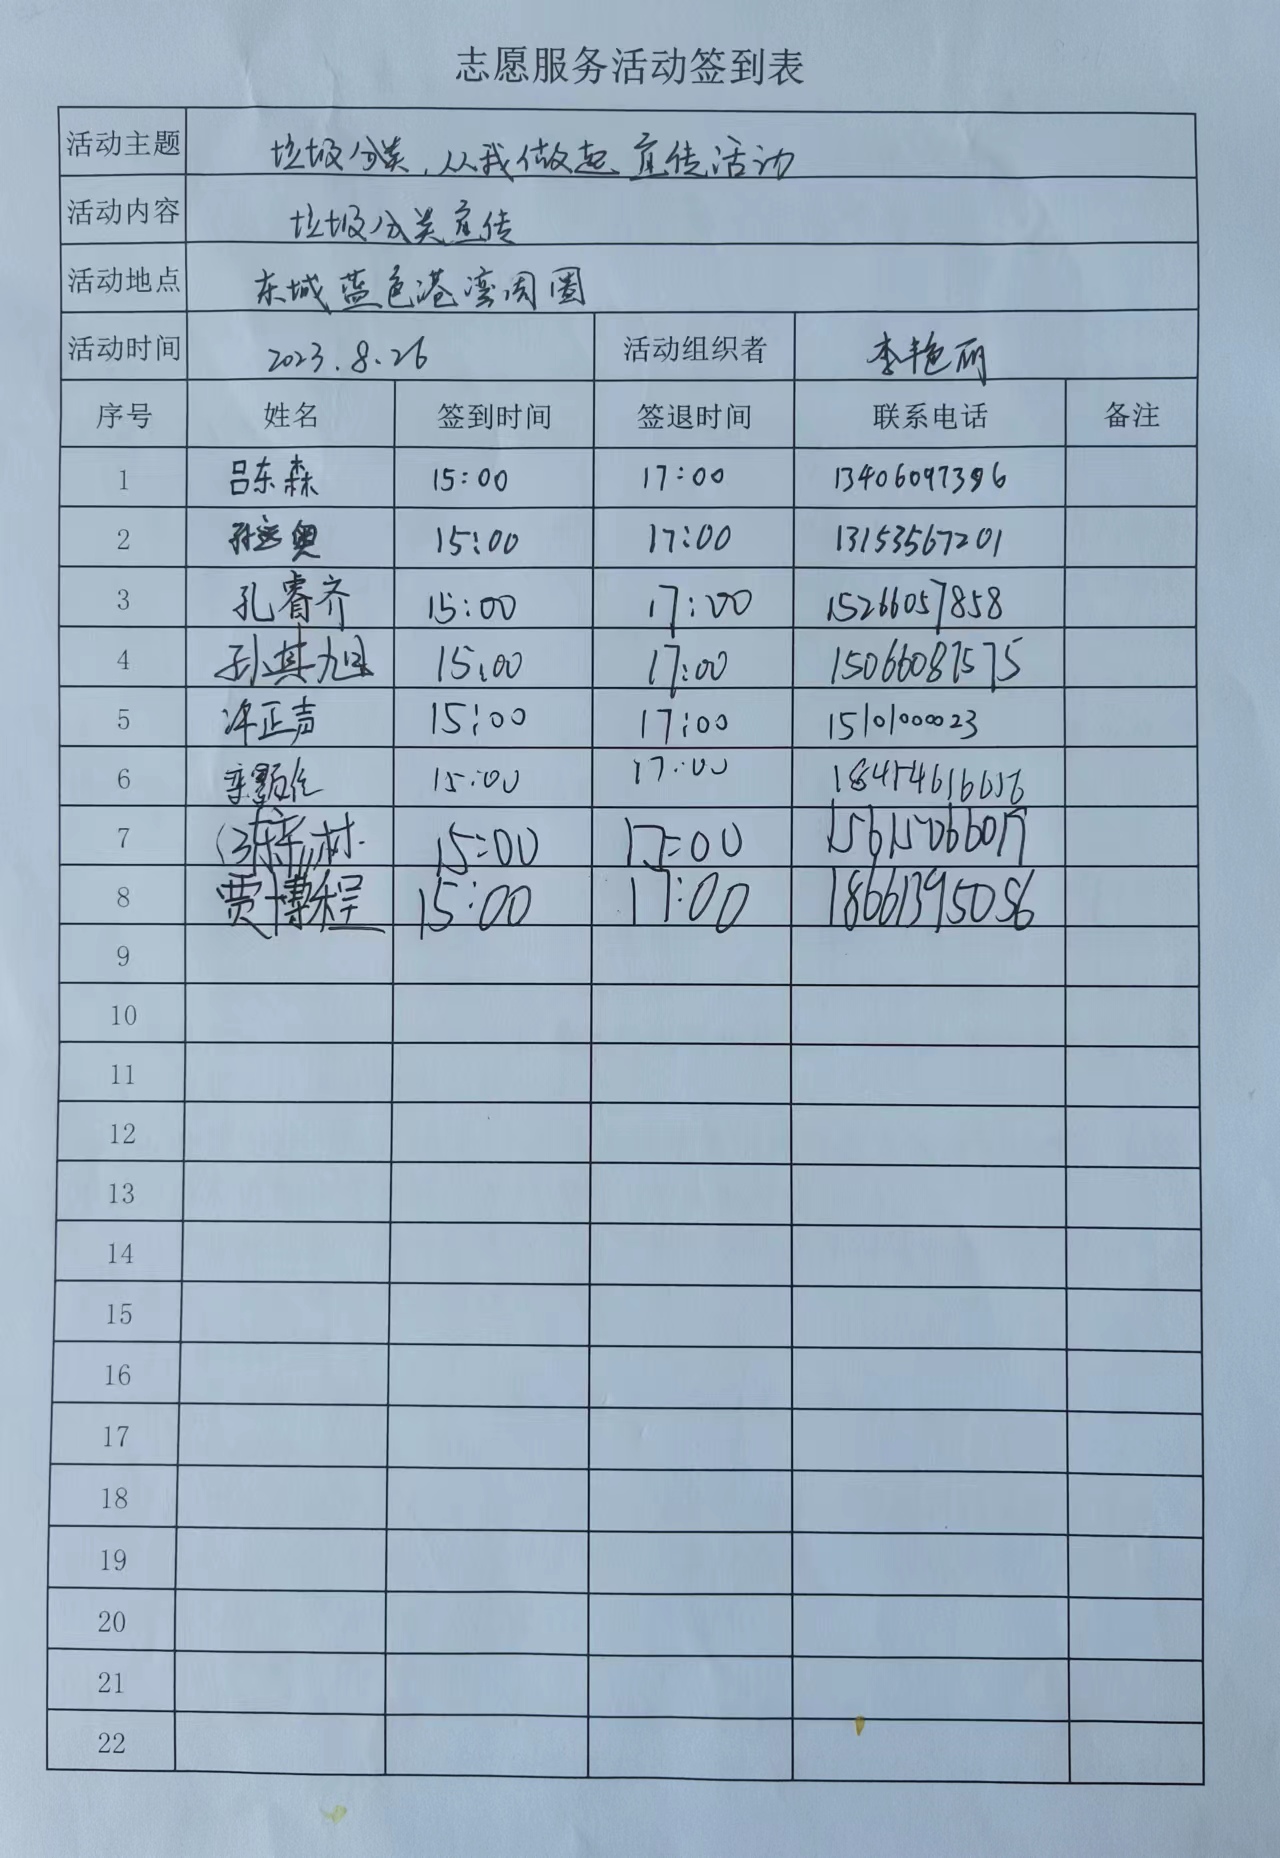 志愿服务活动签到表
活动主题 垃圾分类,从我做起宣传活动
活动内容 垃圾分类宣传
活动地点 东城蓝色港湾周围
活动时间 2023.8.26 活动组织者 李艳丽
序号 姓名 签到时间 签退时间 联系电话 备注
1 吕东森 15:00 17:00 13406097396
2 孙运奥 15:00 17:00 13153567201
3 孔睿齐 15:00 17:00 15266057858
4 孙其旭 15:00 17:00 15066087575
5 许正声 15:00 17:00 15101000023
6 15:00 17:00
7 15:00 17:00 15615066017
8 贾博程 15:00 17:00 18661395056
9
10
11
12
13
14
15
16
17
18
19
20
21
22